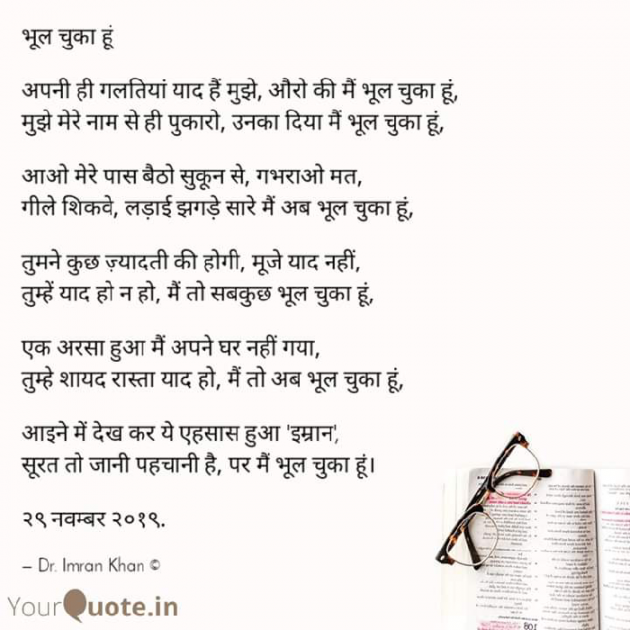 भूल चुका हूं
अपनी ही गलतियां याद हैं मुझे, औरो की मैं भूल चुका हूं,
मुझे मेरे नाम से ही पुकारो, उनका दिया मैं भूल चुका हूं,
आओ मेरे पास बैठो सुकून से, गभराओ मत,
गीले शिकवे, लड़ाई झगड़े सारे मैं अब भूल चुका हूं,
तुमने कुछ ज़्यादती की होगी, मूजे याद नहीं,
तुम्हें याद हो न हो, मैं तो सबकुछ भूल चुका हूं,
एक अरसा हुआ मैं अपने घर नहीं गया,
तुम्हे शायद रास्ता याद हो, मैं तो अब भूल चुका हूं,
आइने में देख कर ये एहसास हुआ 'इम्रान',
सूरत तो जानी पहचानी है, पर मैं भूल चुका हूं।
२९ नवम्बर २०१९.
– Dr. Imran Khan ©
YourQuote.in